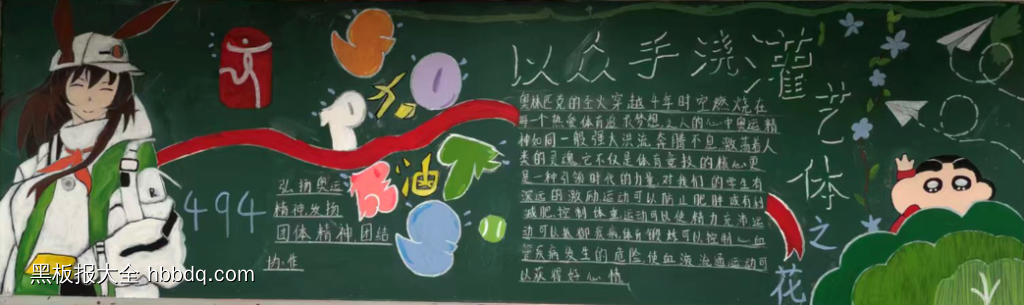 加
油
494
弘扬奥运
精神发扬
团体精神团结
协作
以众手浇灌艺体之花
奥林匹克的圣火穿越千年时空燃烧在
每一个热爱体育追求梦想之人的心中奥运精
神如同一般强大洪流奔腾不息激荡着人
类的灵魂它不仅是体育竞技的核心更
是一种引领时代的力量对我们的学生有
深远的激励运动可以防止肥胖或有助
减肥控制体重运动可以使精力充沛运
动可以
可以控制心血
疾病发生的危险使血液流通运动可
以获得好心情
黑板报大全 hbbdq.com